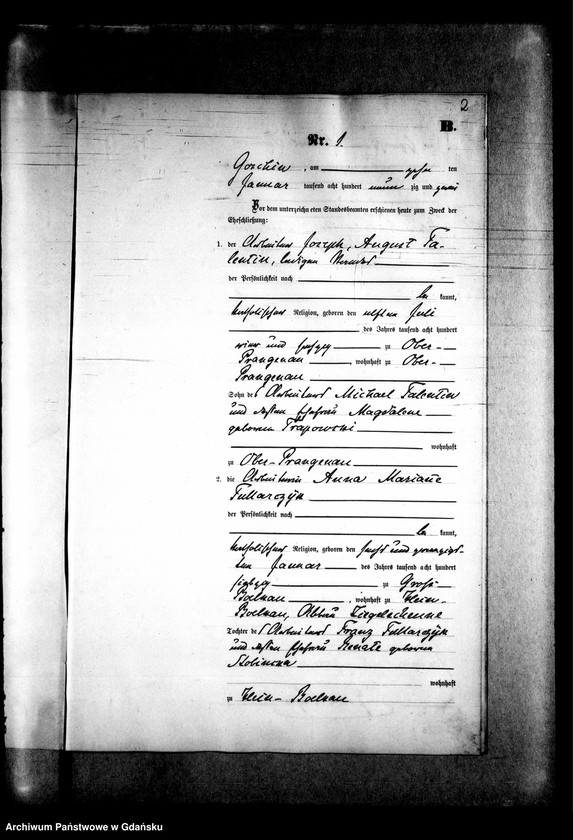 2
B.
Nr. 1.
Goschin, am zehn ten
Januar tausend acht hundert neun zig und zwei
Vor dem unterzeichneten Standesbeamten erschienen heute zum Zweck der
Eheschließung:
1. der Arbeiter Joseph, August Ta-
lentin, ledigen Standes
der Persönlichkeit nach
be kannt,
katholischer Religion, geboren den elften Juli
des Jahres tausend acht hundert
vier und sechzig zu Ober-
Prangenau, wohnhaft zu Ober-
Prangenau
Sohn des Arbeiters Michael Talentin
und dessen Ehefrau Magdalene
geborenen Trapowski
wohnhaft
zu Ober-Prangenau
2. die Arbeiterin Anna Mariane
der Persönlichkeit nach
be kannt,
katholischer Religion, geboren den sechs und zwanzigs-
ten Januar des Jahres tausend acht hundert
siebzig zu Groß-
Boelkau, wohnhaft zu Klein-
Boelkau, Abbau Ziegelscheune
Tochter des Arbeiters Franz
und dessen Ehefrau Renate geborenen
wohnhaft
zu Klein-Boelkau
Archiwum Państwowe w Gdańsku